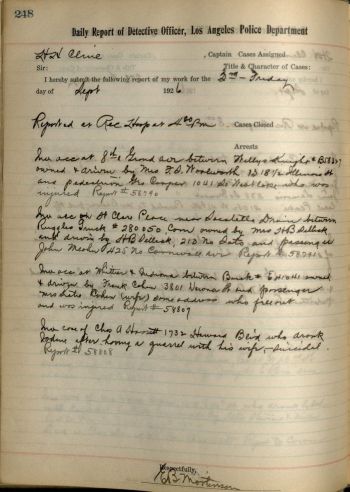 248
Daily Report of Detective Officer, Los Angeles Police Department
H H Cline , Captain Cases Assigned
Sir: Title & Character of Cases:
I hereby submit the following report of my work for the 3rd - Friday
day of Sept 1926
Reported at Rec Hosp at 4 00 Pm Cases Closed
Arrests
Inv acc at 8th & Grand ave between Willys Knight # B15327
owned & driven by Mrs F.D. Woolworth 1218 1/2 Illinois St
and pedestrian Geo Cooper 1041 So Westlake who was
injured Report # 58790
Inv acc on St Clair Place near between
Ruggles Truck # 280050 Com owned by Mrs H B
and driven by H B 210 No and passenger
John 425 No Cornwell ave Report # 58791
Inv acc at Whittier & Indiana between Buick # E41041 owned
& driven by Frank Cohn 3801 St and passenger
Mrs Leta Cohn (wife) same address who fell out
and was injured Report # 58807
Inv case of Chas A 1732 Howard Blvd who drank
Iodine after having a quarrel with his wife, - suicidal -
Report # 58808
Respectfully,
E B Mortensen